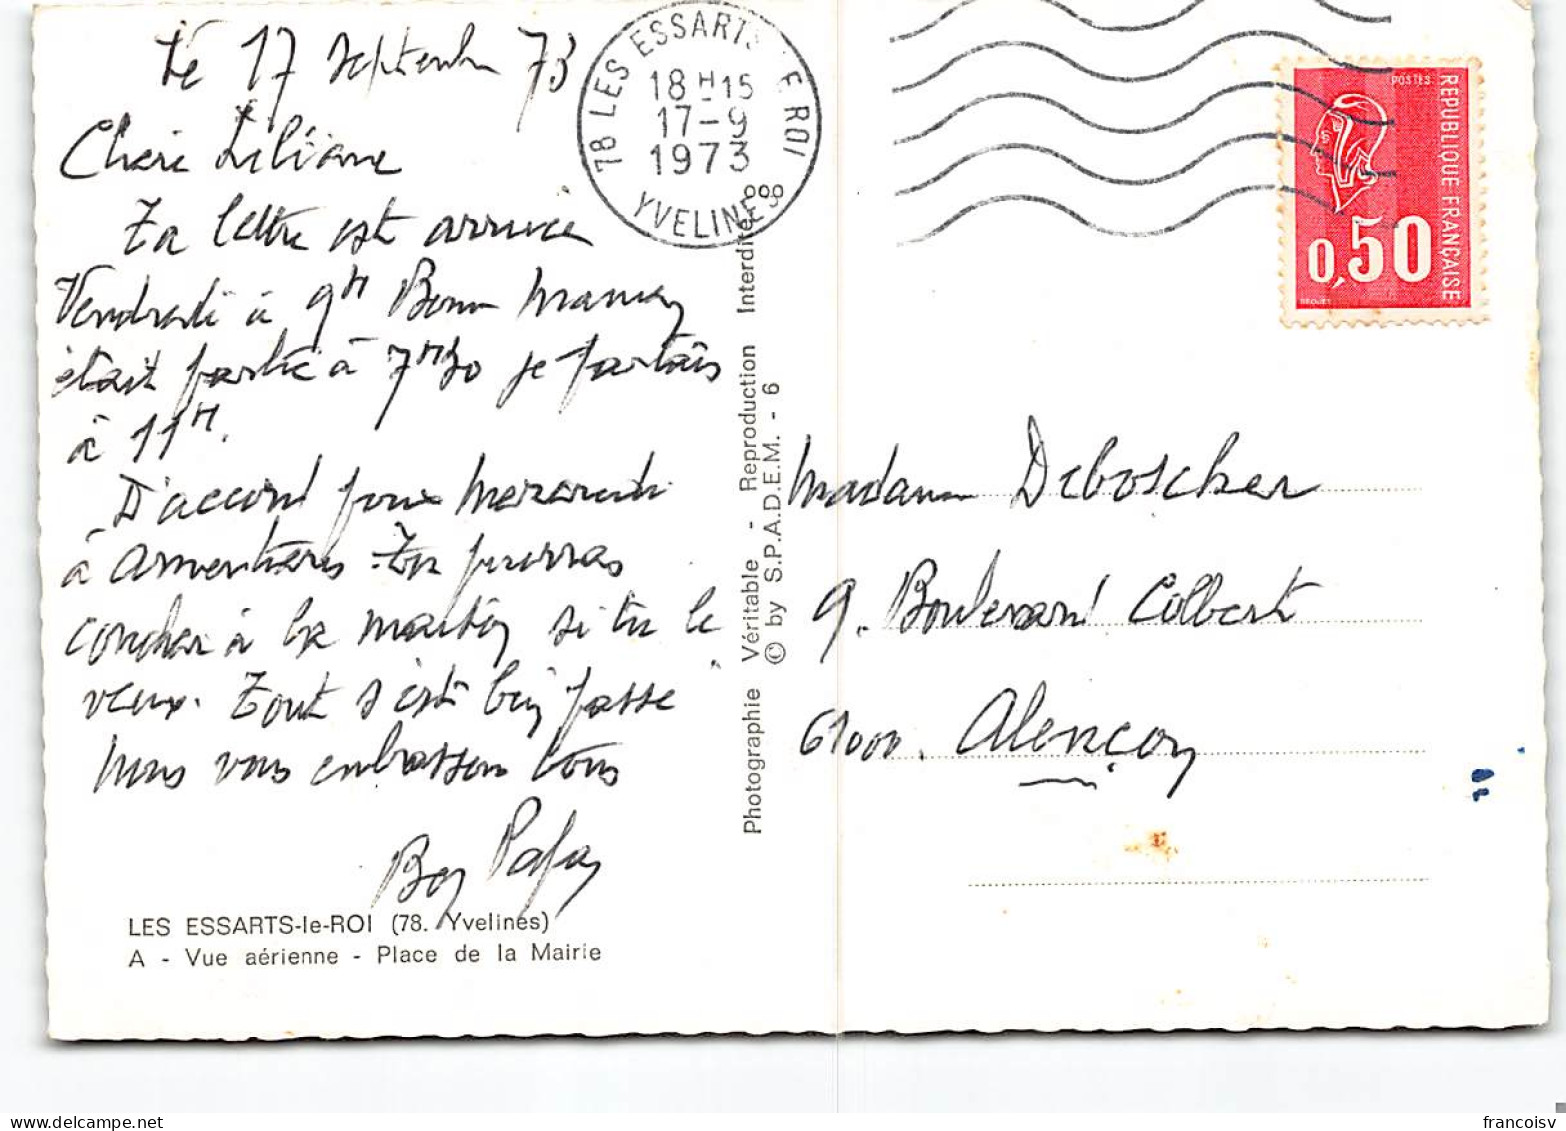 Le 17 Septembre 73
Chère Liliane
Ta lettre est arrivée
Vendredi à 9H Bonne Maman
était partie à 7H30 je partais
à 11H.
D'accord pour Mercredi
à Armentières. Tu pourras
coucher à la maison si tu le
veux. Tout s'est bien passé
Nous vous embrassons tous
Bon Papa
LES ESSARTS-le-ROI (78. Yvelines)
A - Vue aérienne - Place de la Mairie
78 LES ESSARTS LE ROI
18H15
17-9
1973
YVELINES
Photographie Véritable - Reproduction Interdite
© by S.P.A.D.E.M. - 6
POSTES
REPUBLIQUE FRANÇAISE
0,50
Madame Deboscher
9. Boulevard Colbert
61000. Alençon
francoisv